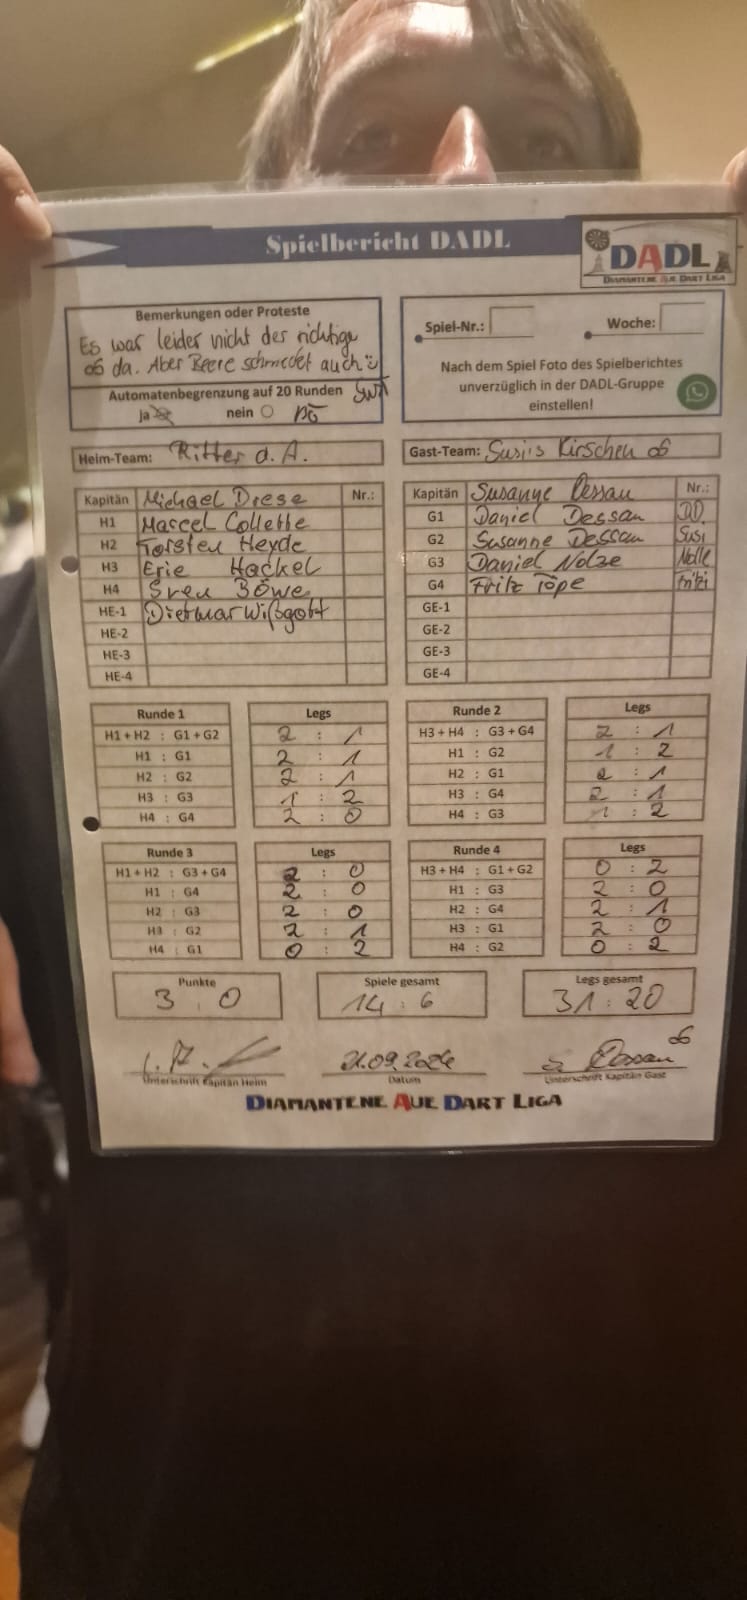 Spielbericht DADL
DADL
DIAMANTENE AUE DART LIGA
Bemerkungen oder Proteste
Es war leider nicht der richtige
da. Aber Beere schmeckt auch
Automatenbegrenzung auf 20 Runden
ja nein
Spiel-Nr.: Woche:
Nach dem Spiel Foto des Spielberichtes
unverzüglich in der DADL-Gruppe
einstellen!
Heim-Team: Ritter d. A.
Gast-Team: Susi's Kirschen
Kapitän Michael Diese Nr.:
H1 Marcel Collette
H2 Torsten Heyde
H3 Eric Hackel
H4 Sven Böwe
HE-1 Dietmar Wißgott
HE-2
HE-3
HE-4
Kapitän Susanne Dessau Nr.:
G1 Daniel Dessau DD.
G2 Susanne Dessau Susi
G3 Daniel Nolze Nolle
G4 Fritz Töpe Fritzi
GE-1
GE-2
GE-3
GE-4
Runde 1 Legs
H1 + H2 : G1 + G2 2 : 1
H1 : G1 2 : 1
H2 : G2 2 : 1
H3 : G3 1 : 2
H4 : G4 2 : 0
Runde 2 Legs
H3 + H4 : G3 + G4 2 : 1
H1 : G2 1 : 2
H2 : G1 2 : 1
H3 : G4 2 : 1
H4 : G3 1 : 2
Runde 3 Legs
H1 + H2 : G3 + G4 2 : 0
H1 : G4 2 : 0
H2 : G3 2 : 0
H3 : G2 2 : 1
H4 : G1 0 : 2
Runde 4 Legs
H3 + H4 : G1 + G2 0 : 2
H1 : G3 2 : 0
H2 : G4 2 : 1
H3 : G1 2 : 0
H4 : G2 0 : 2
Punkte
3 : 0
Spiele gesamt
14 : 6
Legs gesamt
31 : 20
21.09.2024
S. Dessau
Unterschrift Kapitän Heim
Datum
Unterschrift Kapitän Gast
DIAMANTENE AUE DART LIGA